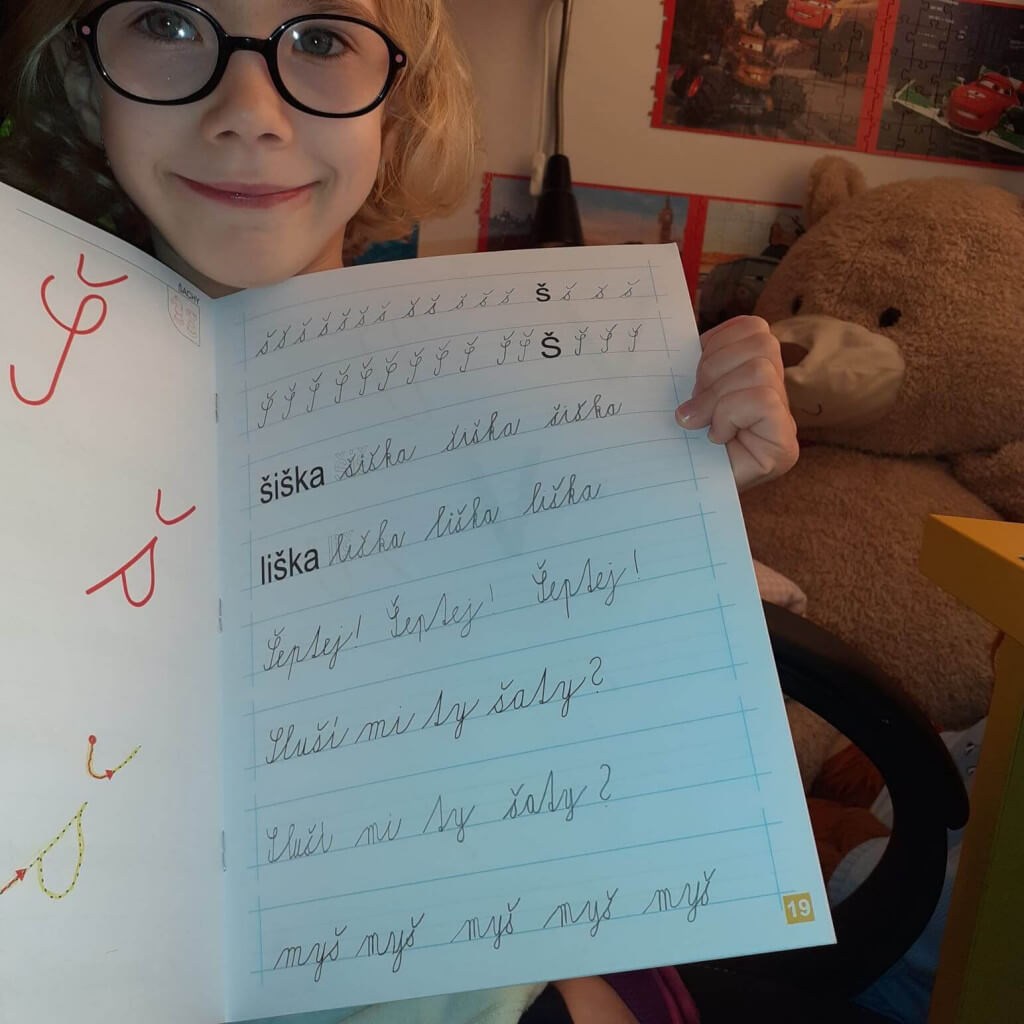 ŠACHY
Š
š š š š š š š š š š š š Š š š š
Š Š Š Š Š Š Š Š Š Š Š Š Š Š Š
š
šiška šiška šiška šiška
liška liška liška liška
Šeptej! Šeptej! Šeptej!
Sluší mi ty šaty?
Sluší mi ty šaty?
myš myš myš myš myš
19